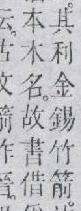 其利金錫竹箭
本木名。故書借
云古文箭作